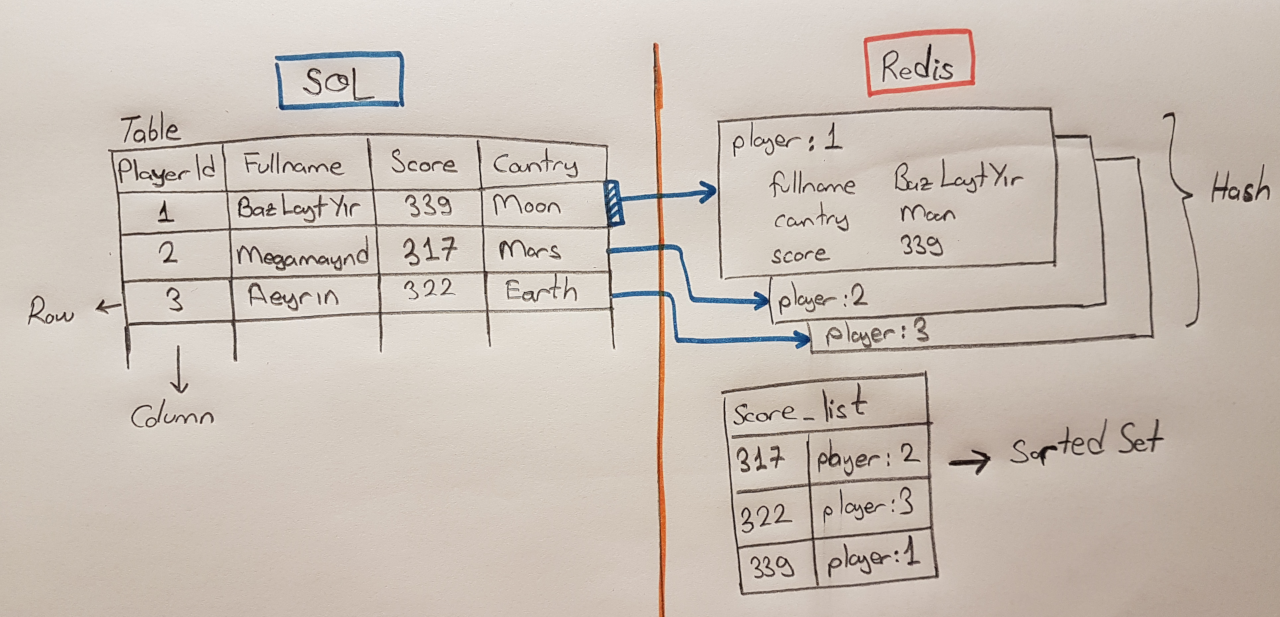 SQL
Table
PlayerId Fullname Score Cantry
1 BazLaytYır 339 Moon
2 Megamaynd 317 Mars
3 Aeyrın 322 Earth
Row
Column
Redis
player:1
fullname BazLaytYır
cantry Moon
score 339
player:2
player:3
Hash
Score_list
317 player:2
322 player:3
339 player:1
Sorted Set